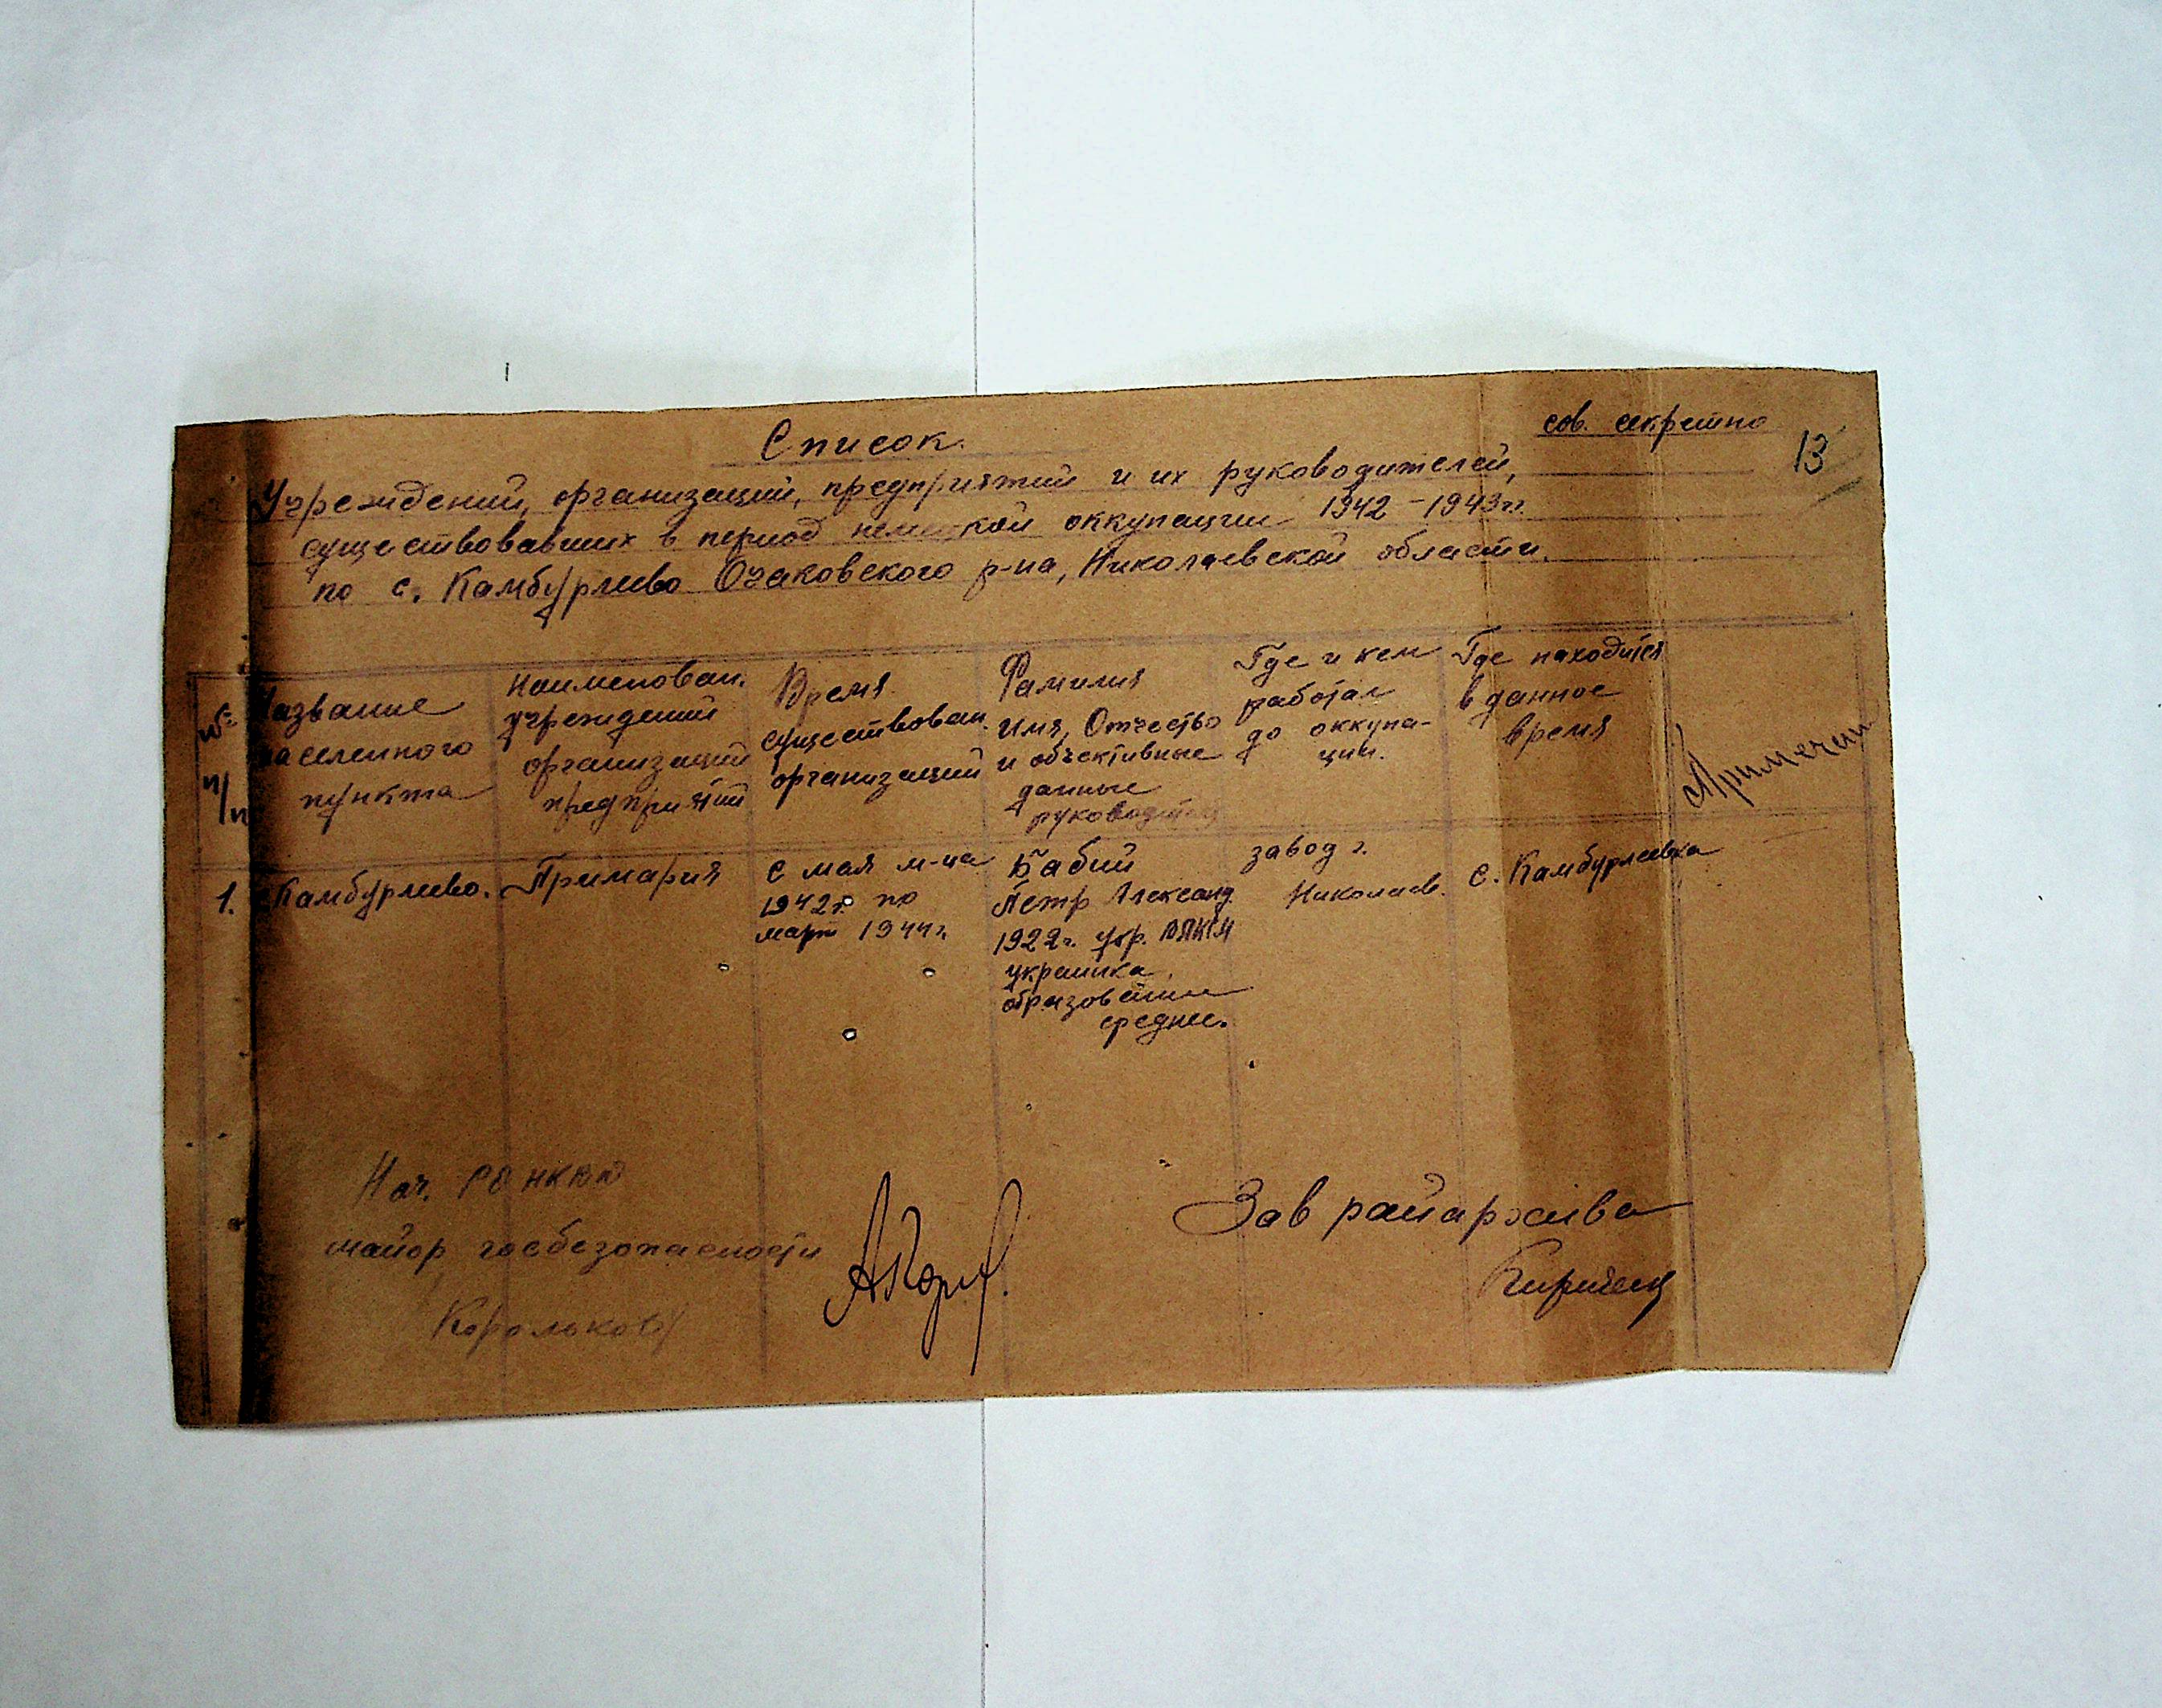 сов. секретно
13
Список.
Учреждений, организаций, предприятий и их руководителей,
существовавших в период немецкой оккупации 1942-1943гг.
по с. Камбурлиево Очаковского р-на, Николаевской области.
№ п/п
Название
населенного
пункта
Наименован.
учреждений
организаций
предприятий
Время
существован.
организаций
Фамилия
Имя, Отчество
и объективные
данные
руководител
Где и кем
работал
до оккупа-
ции.
Где находится
в данное
время
Примечан
1. Камбурлиево.
Примария
с мая м-ца
1942г. по
март 1944г.
Бабий
Петр Александ.
1922г. ВЛКСМ
образование
средне.
завод г.
Николаев.
с. Камбурлиевка
Нач. РО НКВД
майор госбезопасности
Корольков
Зав райархива